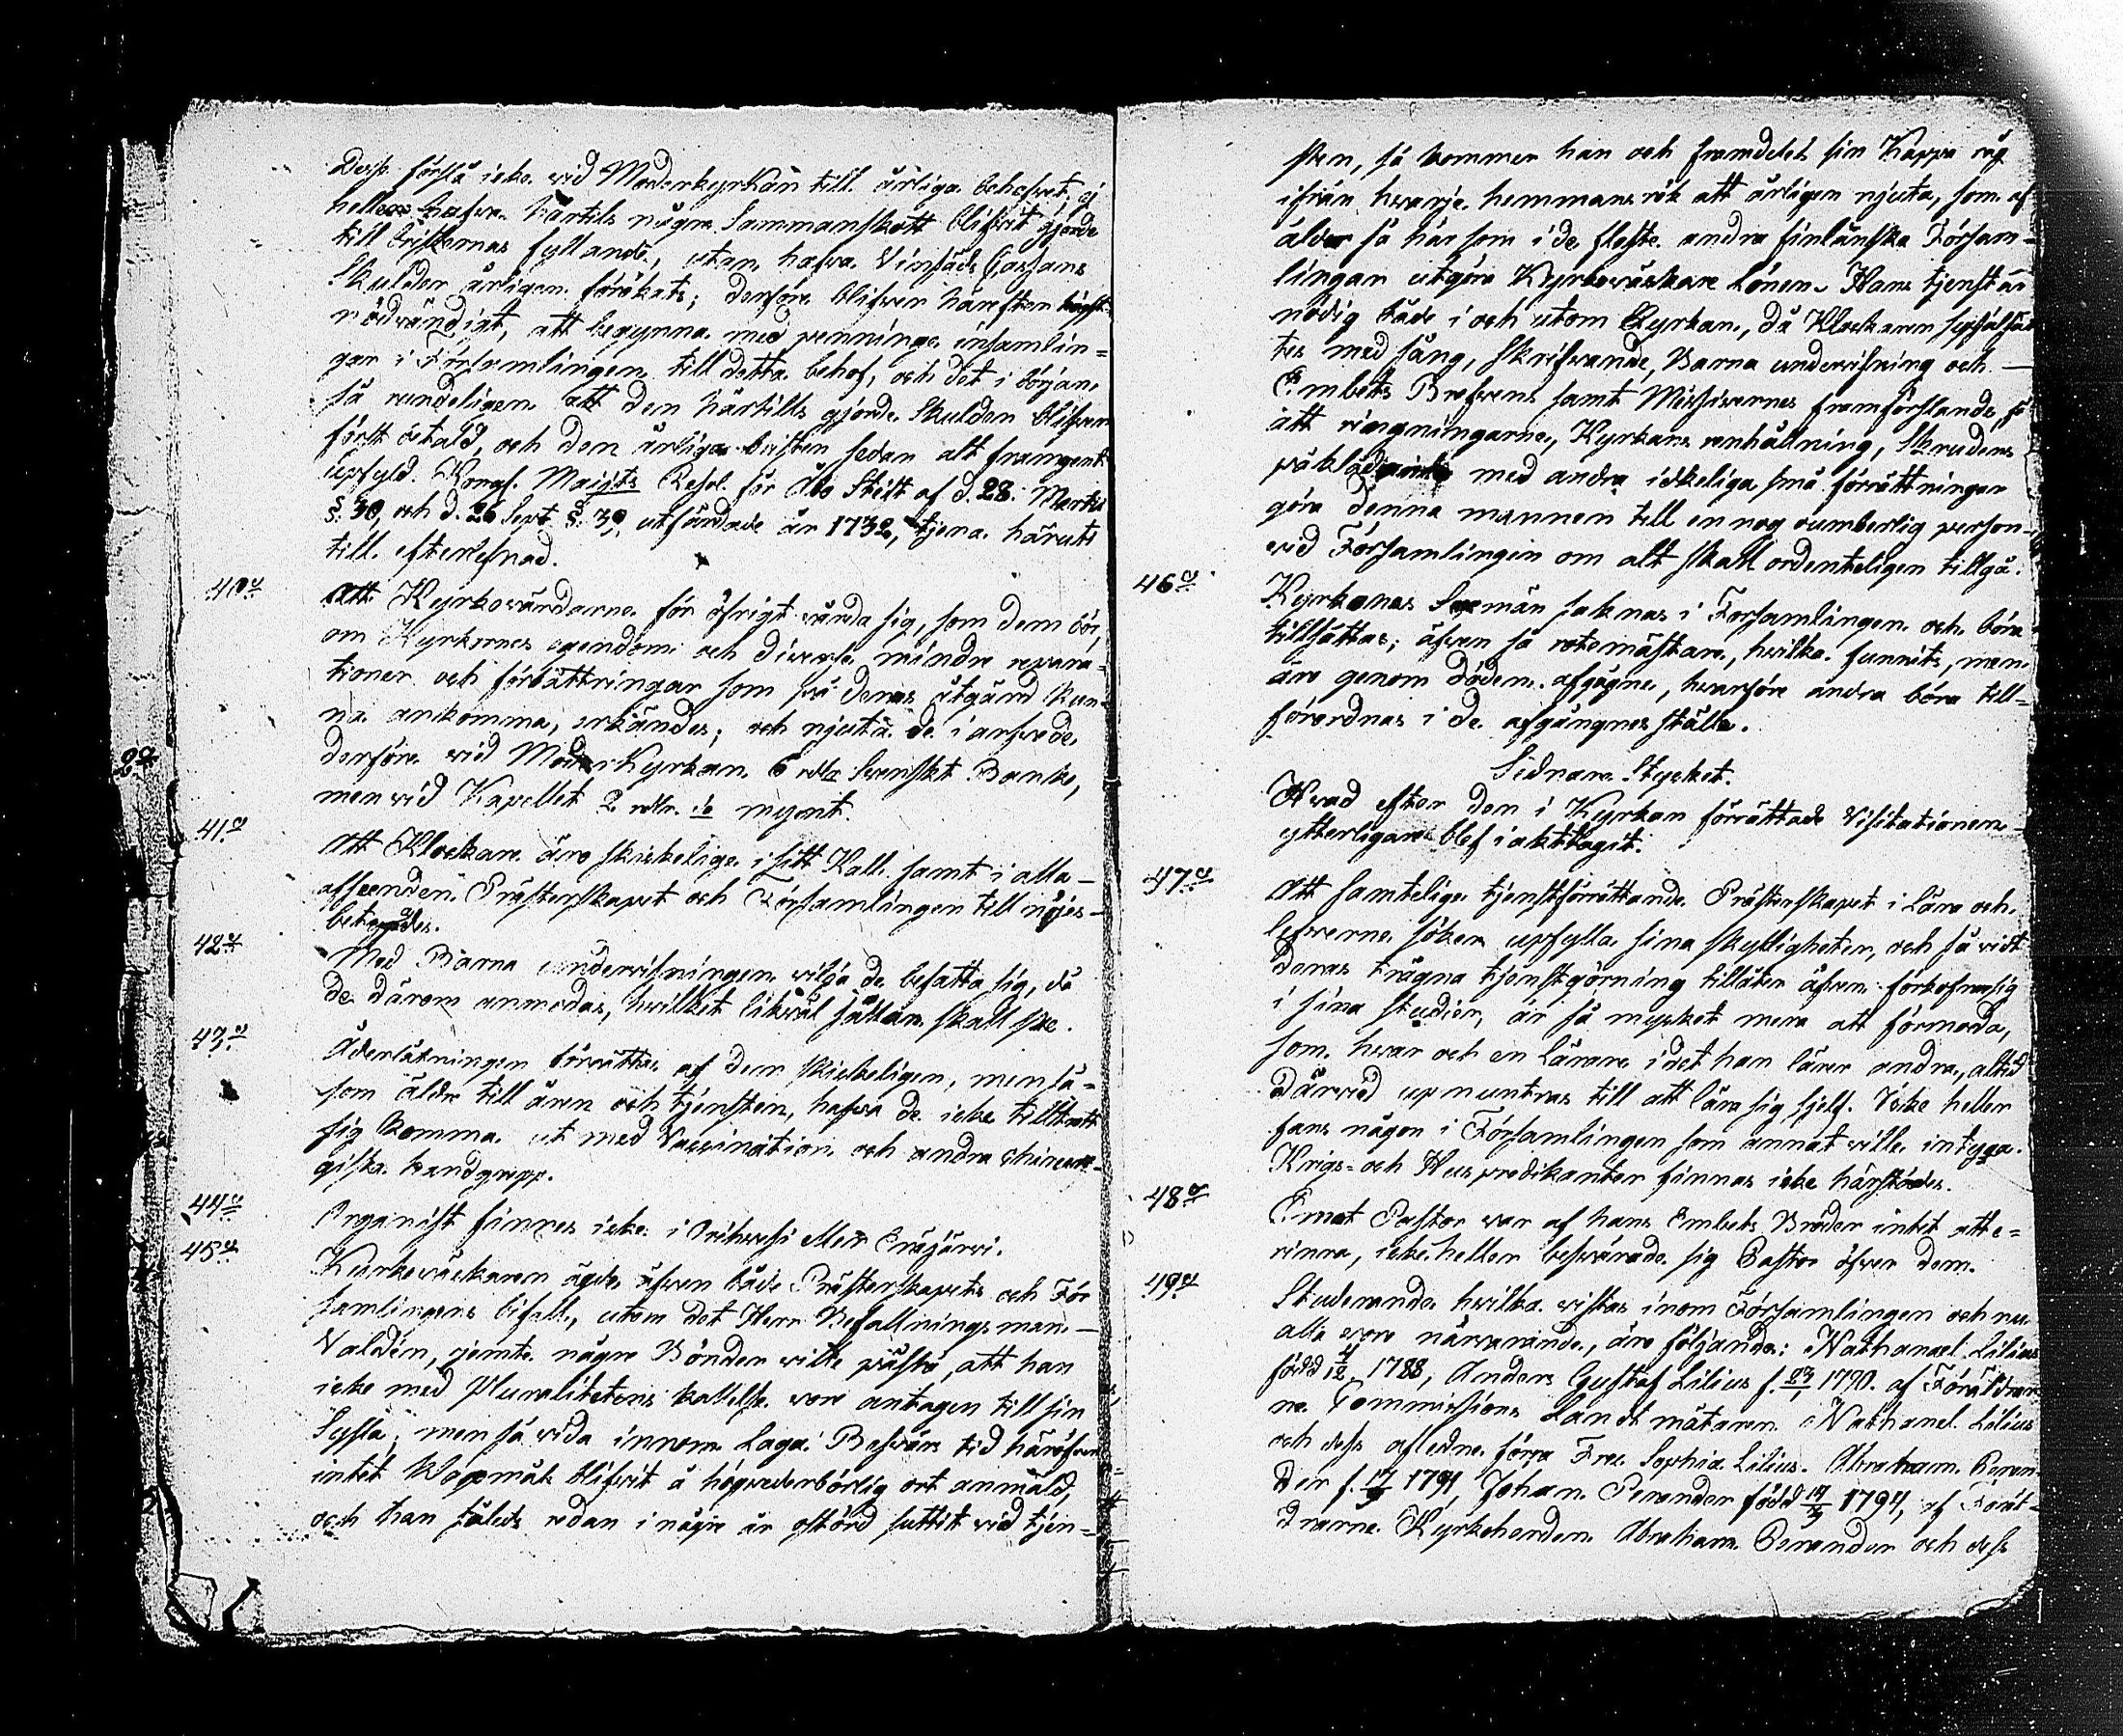 Dess förslå icke vid Moderkyrkan till årliga behofvet; ej
heller hafva härtils någre Sammanskott blifvit gjorde
till bristernas fyllande, utan hafva Vinsäds Cassans
Skulder årligen förökats; derföre blifver härefter högst
nödvändigt, att begynna med penninge insamlin=
gar i Församlingen till detta behof, och det i början
så rundeligen att den härtills gjorde Skulden blifver
först betald, och den årliga bristen sedan alt framgent
upfyld. Kongl. Maijts Resol. för Åbo Stift af d. 28. Martii
§. 30, och d. 26 Sept §. 39, utfärdade år 1732, tjena häruti
till efterlefnad.
40o
Att Kyrkovärdarne för öfrigt vårda sig, som dem bör,
om Kyrkornes egendom och diverse mindre repara=
tioner och förbättringar som på deras åtgärd kun=
na ankomma, erkändes; och njuta de i arfvode
derföre vid Moder Kyrkan 6 rdlr Svenskt Banko,
men vid Kapellet 2 rdlr. do mynt.
41o
Att Klockare äro skickelige i sitt Kall samt i alla
afseenden Prästerskapet och Församlingen till nöjes
betygades.
42o
Med Barna undervisningen vilja de befatta sig, då
de därom anmodas, hvilket likväl sällan skall ske.
43o
Åderlåtningen förrättas af dem skickeligen, men så=
som äldre till åren och tjensten, hafva de icke tilltrott
sig komma ut med Vaccination och andra chirur=
giska handgrepp.
44o
Organist finnes icke i Orihvesi eller Eräjärvi.
45o
Kyrkoväckaren ägde äfven både Prästerskapets och För
samlingens bifall, utom det Herr Befallningsman
Valdén, jemte någre Bönder ville påstå, att han
icke med Pluralitetens kallelse vore antagen till sin
Syssla; men så vida innom Laga Besvärs tid häröfver
intet klagomål blifvit å högvederbörlig ort anmäld,
och han således redan i någre år ostörd suttit vid tjen=
sten, så kommer han och framdeles sin Kappa råg
ifrån hvarje hemmans rök att årligen njuta, som af
ålder så här som i de fleste andra finländska Försam=
lingar utgöra Kyrkoväckare Lönen. Hans tjenst är
nödig både i och utom Kyrkan, då Klockaren sysselsät
tes med sång, skrifvande, Barna undervisning och
Embets Brefvens samt Missivernes framförslande, så
att ringningarne, Kyrkans renhållning, Skrudens
påklädning med andra iskeliga små förrättningar
göra denna mannen till en nog oumberlig person
vid Församlingen om alt skall ordenteligen tillgå.
46o
Kyrkones Sexmän saknas i Församlingen och böra
tillsättas; äfven så rotemästare, hvilka funnits, men
äro genom döden afgågne, hvarföre andra böra till=
förordnas i de afgångnes ställe.
Sednare Stycket.
Hvad efter den i Kyrkan förrättade Visitationen
ytterligare blef iakttagit.
47o
Att samtelige tjenstförrättande Prästerskapet i Lära och
lefverne söker upfylla sina skyldigheter, och så vidt
deras trägna tjenstgörning tillåter äfven förkofra sig
i sina studier, är så mycket mera att förmoda,
som hvar och en Lärare i det han lärer andra, altid
därvid upmuntras till att lära sig sjelf. Icke heller
fans någon i Församlingen som annat ville intyga.
Krigs= och Huspredikanter finnas icke härstädes.
48o
Emot Pastor var af hans Embets Bröder intet att e=
rinra, icke heller besvärade sig Pastor öfver dem.
49o
Studerande hvilka vistas inom Församlingen och nu
alla voro närvarande, äro följande: Nathanael Lilius
född 4/12 1788, Anders Gustaf Lilius f. 27/1 1790. af Föräldrar
ne Commissions Landtmätaren Nathanael Lilius
och dess afledne förra Fru Sophia Lilius. Abraham Peran=
der f. 17/9 1791, Johan Perander född 14/9 1794, af Föräl=
drarne Kyrkoherden Abraham Perander och dess